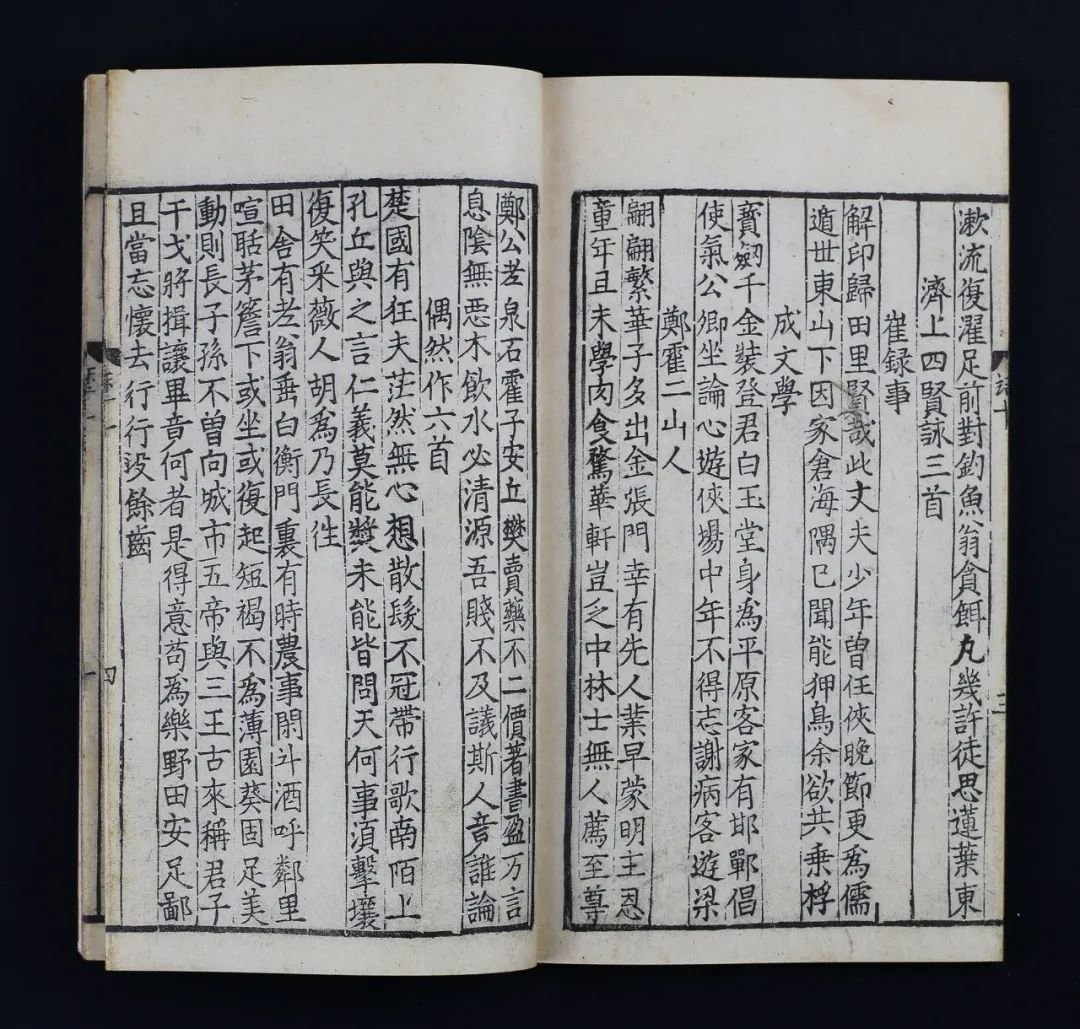 漱流復濯足前對釣魚翁貪餌丸幾許徒思蓮葉東
濟上四賢詠三首
崔録事
解印歸田里賢哉此丈夫少年曾任俠晚節更爲儒
遁世東山下因家倉海隅已聞能狎鳥余欲共乗桴
成文學
寳劔千金裝登君白玉堂身爲平原客家有邯鄲倡
使氣公卿坐論心遊俠場中年不得志謝病客遊梁
鄭霍二山人
翩翩繁華子多出金張門幸有先人業早蒙明主恩
童年且未學肉食騖華軒豈乏中林士無人薦至尊
鄭公老泉石霍子安丘樊賣藥不二價著書盈万言
息陰無惡木飲水必清源吾賤不及議斯人音誰論
偶然作六首
楚國有狂夫茫然無心想散髮不冠帶行歌南陌上
孔丘與之言仁義莫能奬未能皆問天何事湏擊壤
復笑采薇人胡爲乃長徃
田舍有老翁垂白衡門裏有時農事閑斗酒呼鄰里
喧聒茅簷下或坐或復起短褐不爲薄園葵固足美
動則長子孫不曾向城市五帝與三王古來稱君子
干戈將揖讓畢音何者是得意苟爲樂野田安足鄙
且當忘懷去行行没餘齒
三
四